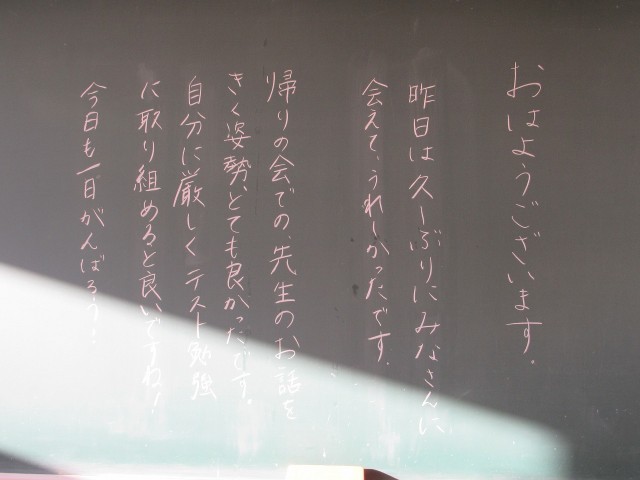 おはようございます。
昨日は久しぶりにみなさんに
会えて、うれしかったです。
帰りの会での、先生のお話を
きく姿勢、とても良かったです。
自分に厳しくテスト勉強
に取り組めると良いですね!
今日も一日がんばろう!